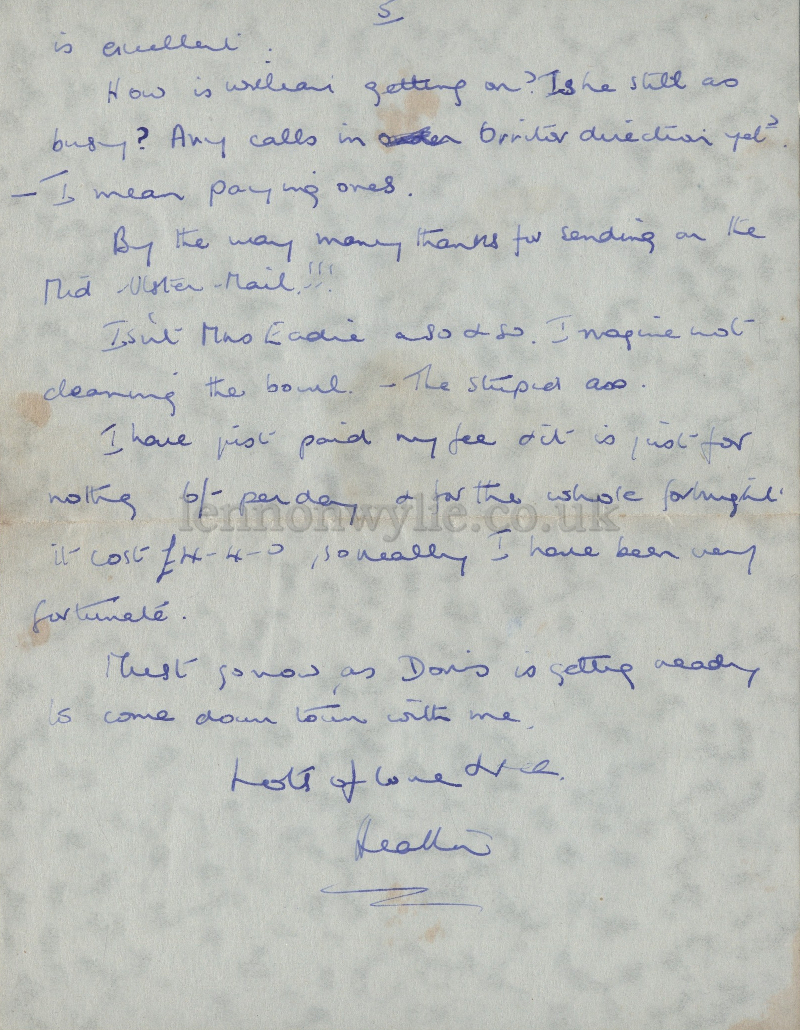 5
is excellent.
How is William getting on? Is he still as
busy? Any calls in Orritor direction yet?.
— I mean paying ones.
By the way many thanks for sending on the
Mid-Ulster-Mail.!!!
Isn't Mrs Eadie a so & so. Imagine not
cleaning the bowl. – The stupid ass.
I have just paid my fee & it is just for
nothing 6/- per day & for the whole fortnight
it cost £4-4-0, so really I have been very
fortunate.
Must go now, as Doris is getting ready
to come down town with me.
Lots of love &
Heather
lennonwylie.co.uk